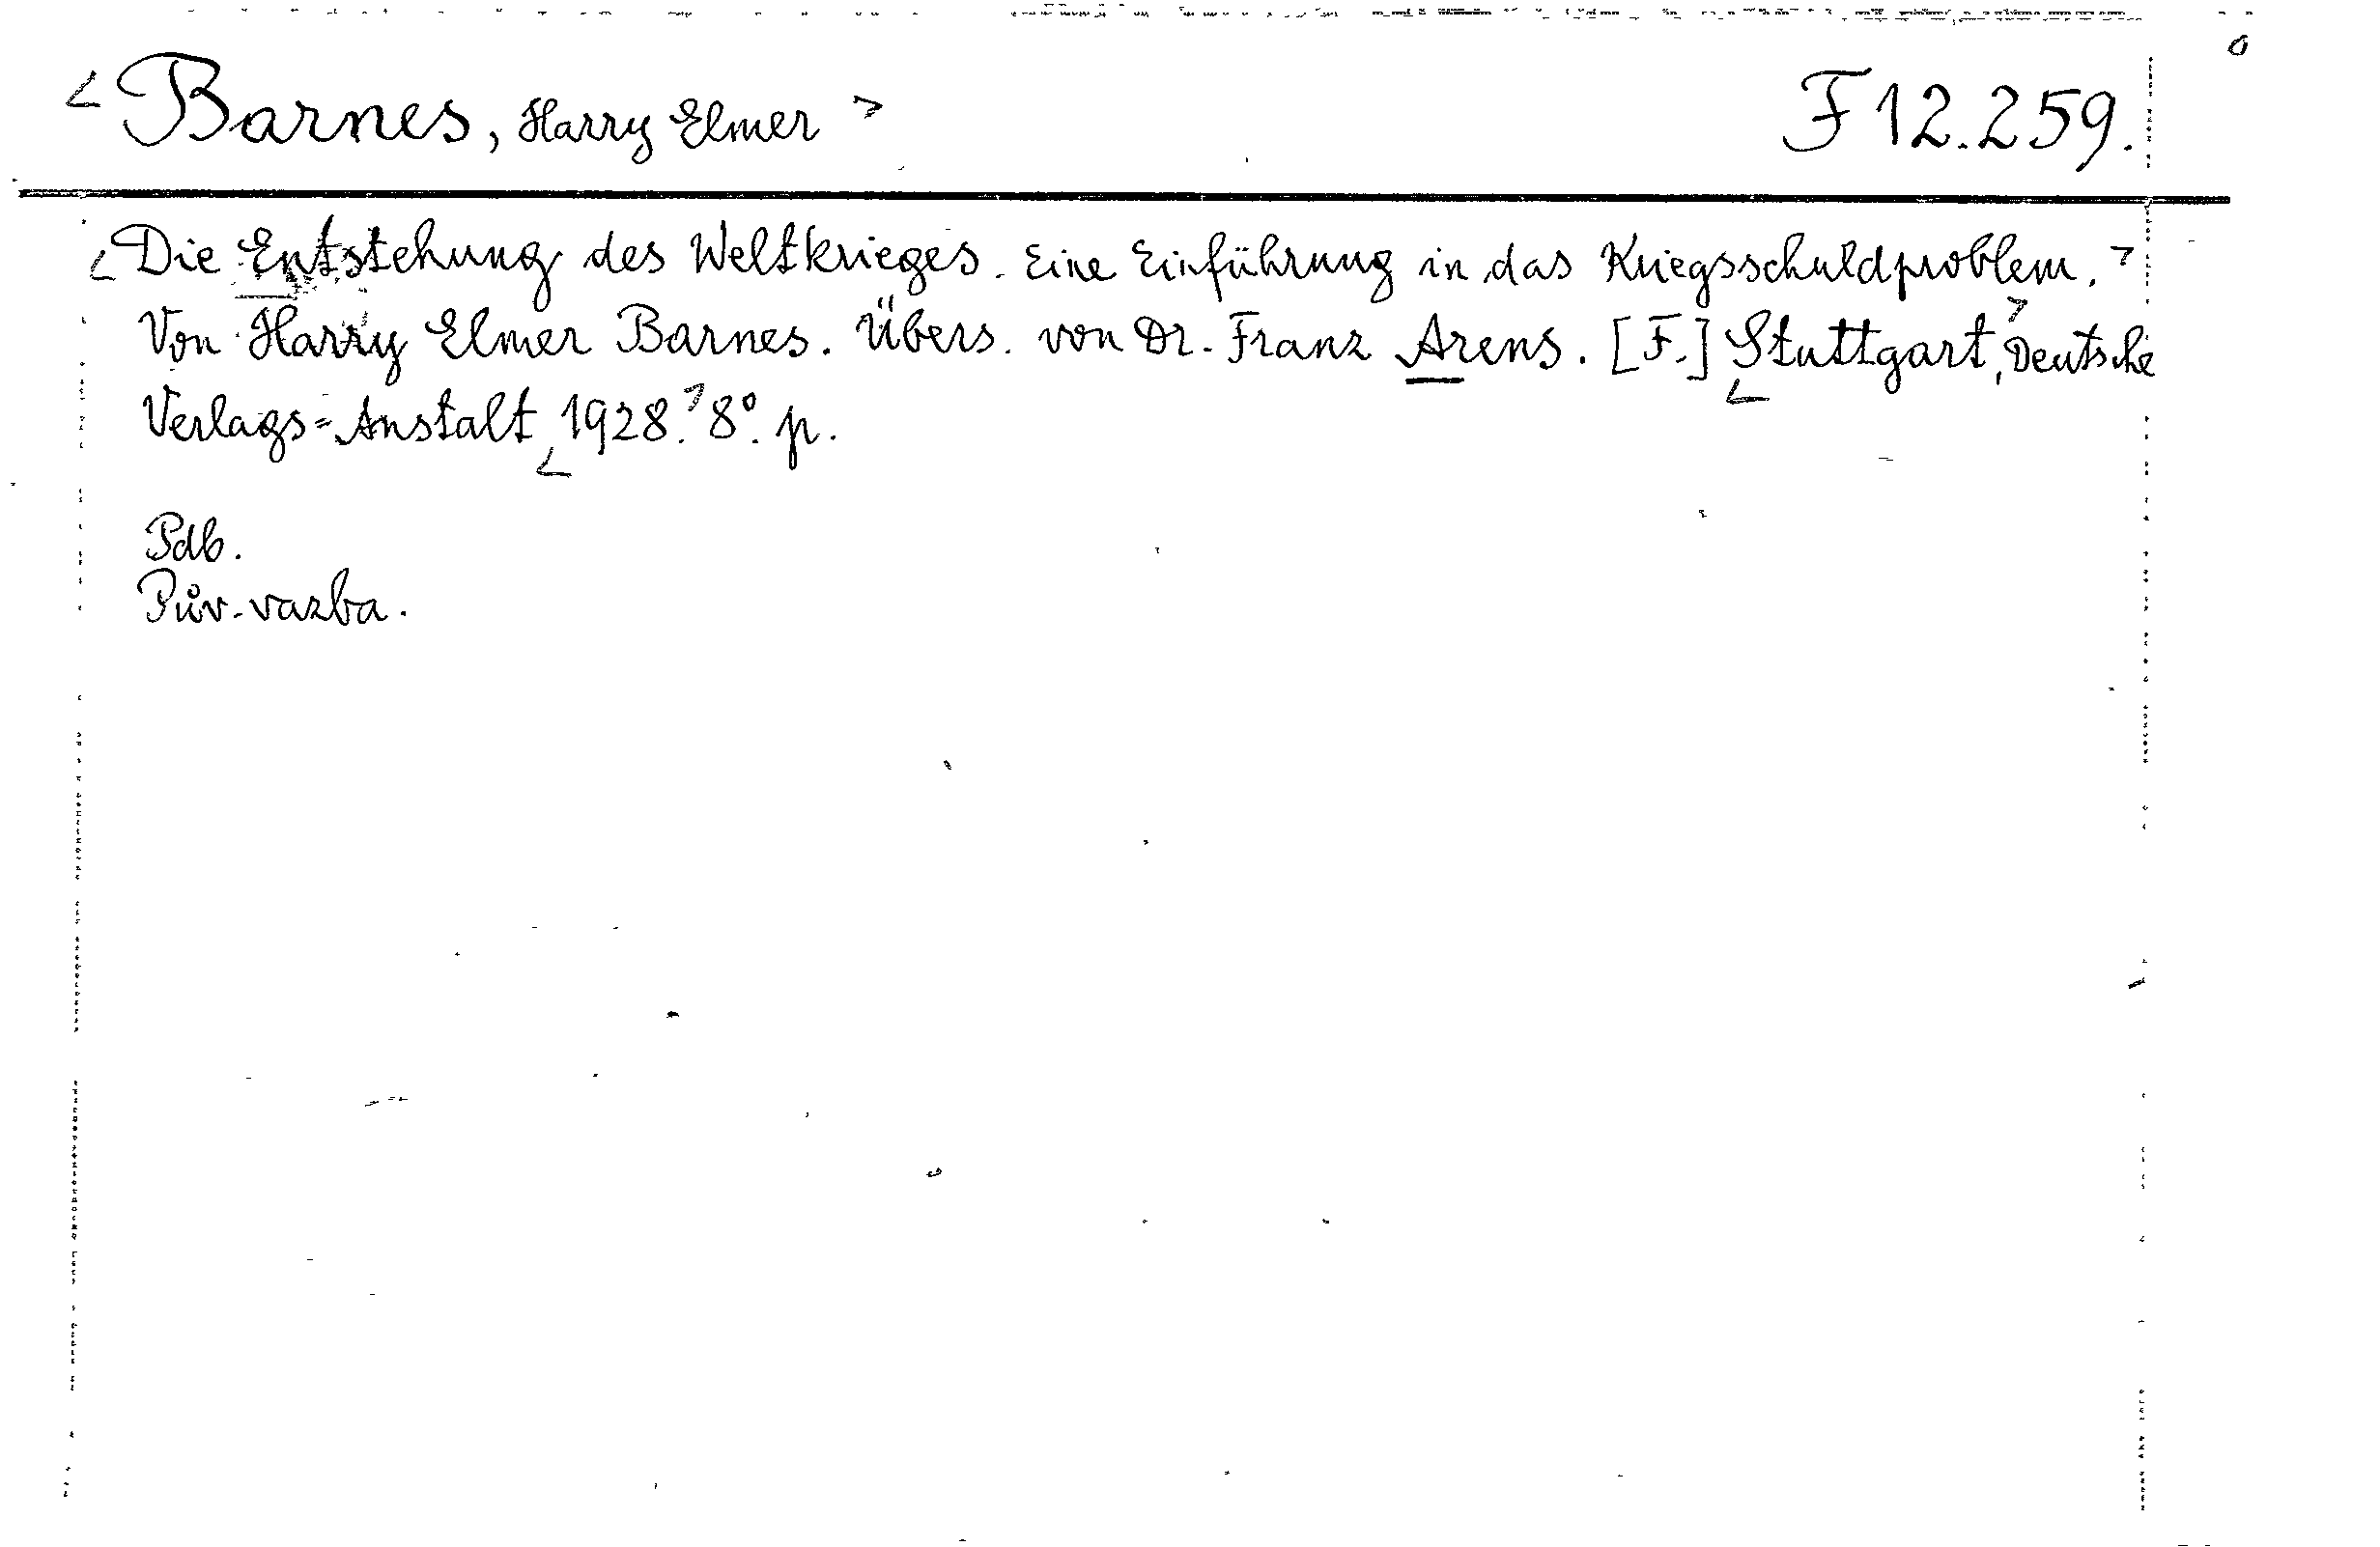 <Barnes, Harry Elmer> F 12.259.
<Die Entstehung des Weltkrieges. Eine Einführung in das Kriegsschuldproblem.>
Von Harry Elmer Barnes. Übers. von Dr. Franz Arens. [F.] <Stuttgart,> Deutsche
Verlags=Anstalt, <1928.> 8°. p.
Pdb.
Pův. vazba.